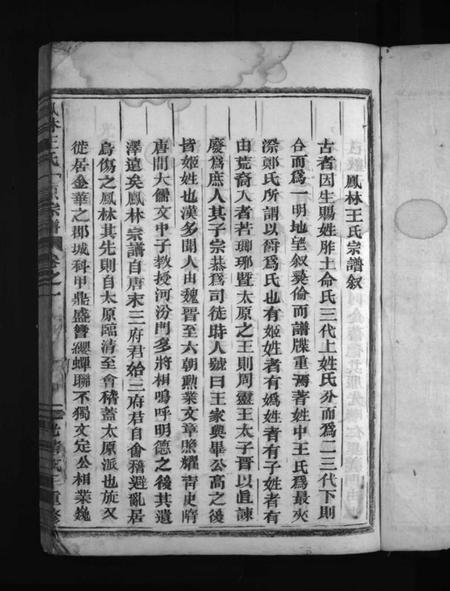 鳳林王氏宗譜叙
古者因生賜姓胙土命氏三代上姓氏分而為二三代下則
合而為一明地望叙彛倫而譜牒重焉著姓中王氏為最夾
漈鄭氏所謂以爵為氏也有姬姓者有媯姓者有子姓者有
由荒裔入者若瑯琊暨太原之王則周靈王太子晋以直諫
廢為庶人其子宗恭為司徒時人號曰王家與畢公高之後
皆姬姓也漢多聞人由魏晋至六朝勲業文章照耀青史隋
唐間大儒文中子教授河汾門多將相嗚呼明德之後其遺
澤遠矣鳳林宗譜自唐末三府君始三府君自會稽避亂居
烏傷之鳳林其先則自太原臨清至會稽蓋太原派也旋又
徙居金華之郡城科甲鼎盛簪纓蟬聯不獨文定公相業巍
鳳林王氏宗譜 卷之一